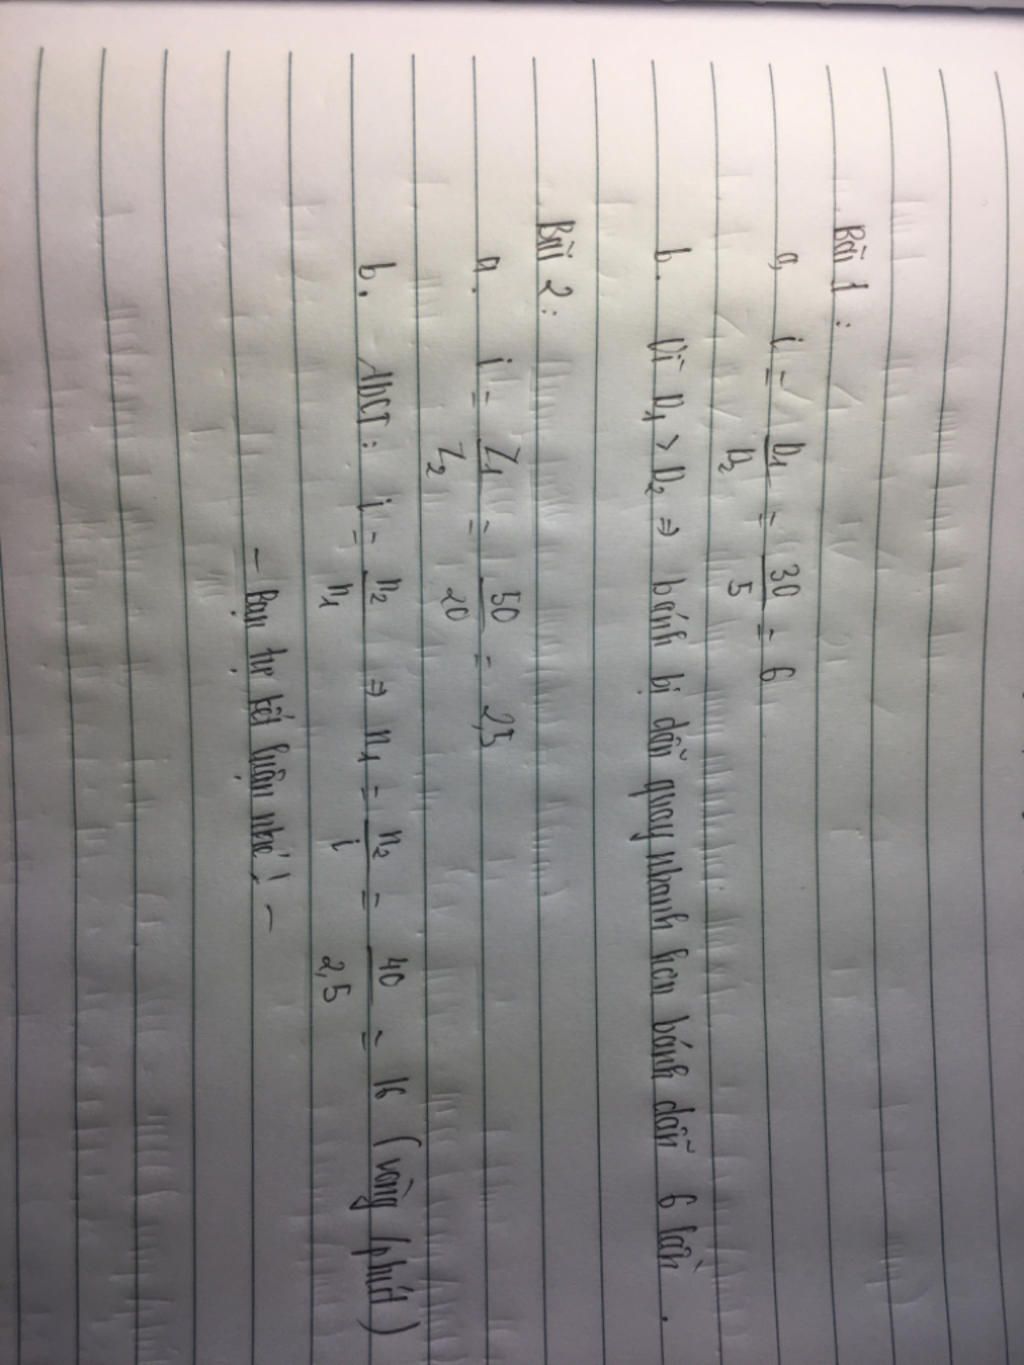 Bài 1 :
a, i = D1/D2 = 30/5 = 6
b. Vì D1 > D2 ⇒ bánh bị dẫn quay nhanh hơn bánh dẫn 6 lần .
Bài 2 :
a. i = Z1/Z2 = 50/20 = 2,5
b. ADCT : i = n2/n1 ⇒ n1 = n2/i = 40/2,5 = 16 ( vòng /phút )
- Bạn tự kết luận nhé ! -